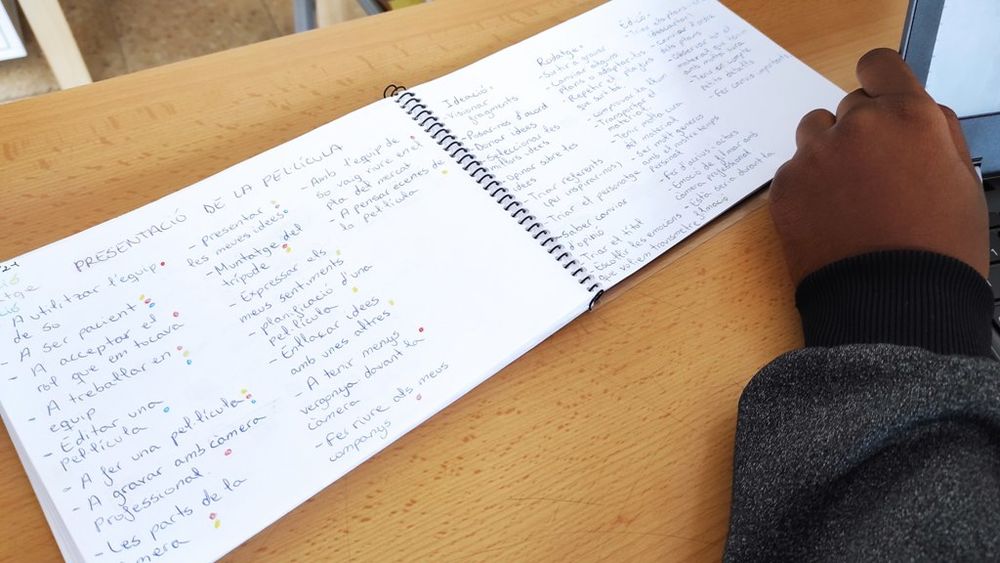 PRESENTACIÓ DE LA PEL·LÍCULA
- A utilitzar l'equip
de so
- A ser pacient
- A acceptar el
rol que em tocava
- A treballar en
equip
- Editar una
pel·lícula
- A fer una pel·lícula
- A gravar amb càmera
professional.
- Les parts de la
càmera
- Presentar
les meves idees
- Muntatge del
trípode
- Expressar els
meus sentiments
- planificació d'una
pel·lícula
- Enllaçar idees
amb unes altres
- A tenir menys
vergonya davant la
càmera
- Fer riure als meus
companys
- Amb l'equip de
so vaig riure en el
Pla del mercat
- A pensar escenes de
la pel·lícula
Ideació:
Visionar
fragments
- Posar-nos d'acord
- Donar idees
- Seleccionar les
millors idees
- Opinar sobre les
idees
- Triar referents
(per inspirar-nos)
- Triar el personatge
- Saber canviar
d'opinió
Triar el títol
Escollir les emocions
que volíem transmetre
Rodatge:
- Sortir a gravar
- Canviar alguns
plans o adaptar-los
- Repetir el pla fins
que surti bé
- comprovar la llum
- Transportar el
material
- Tenir molta cura
del material
- Ser molt generós
amb el nostre temps
- Fer d'actrius-actors
- Emoció de filmar amb
càmera professional
- Està seria durant la
filmació
Edició:
- Triar els plans
(descartar)
- Canviar l'ordre
dels plans
- Observar que el
material
amb molta cura
- Tenir en compte
petits detalls
- Fer canvis importants